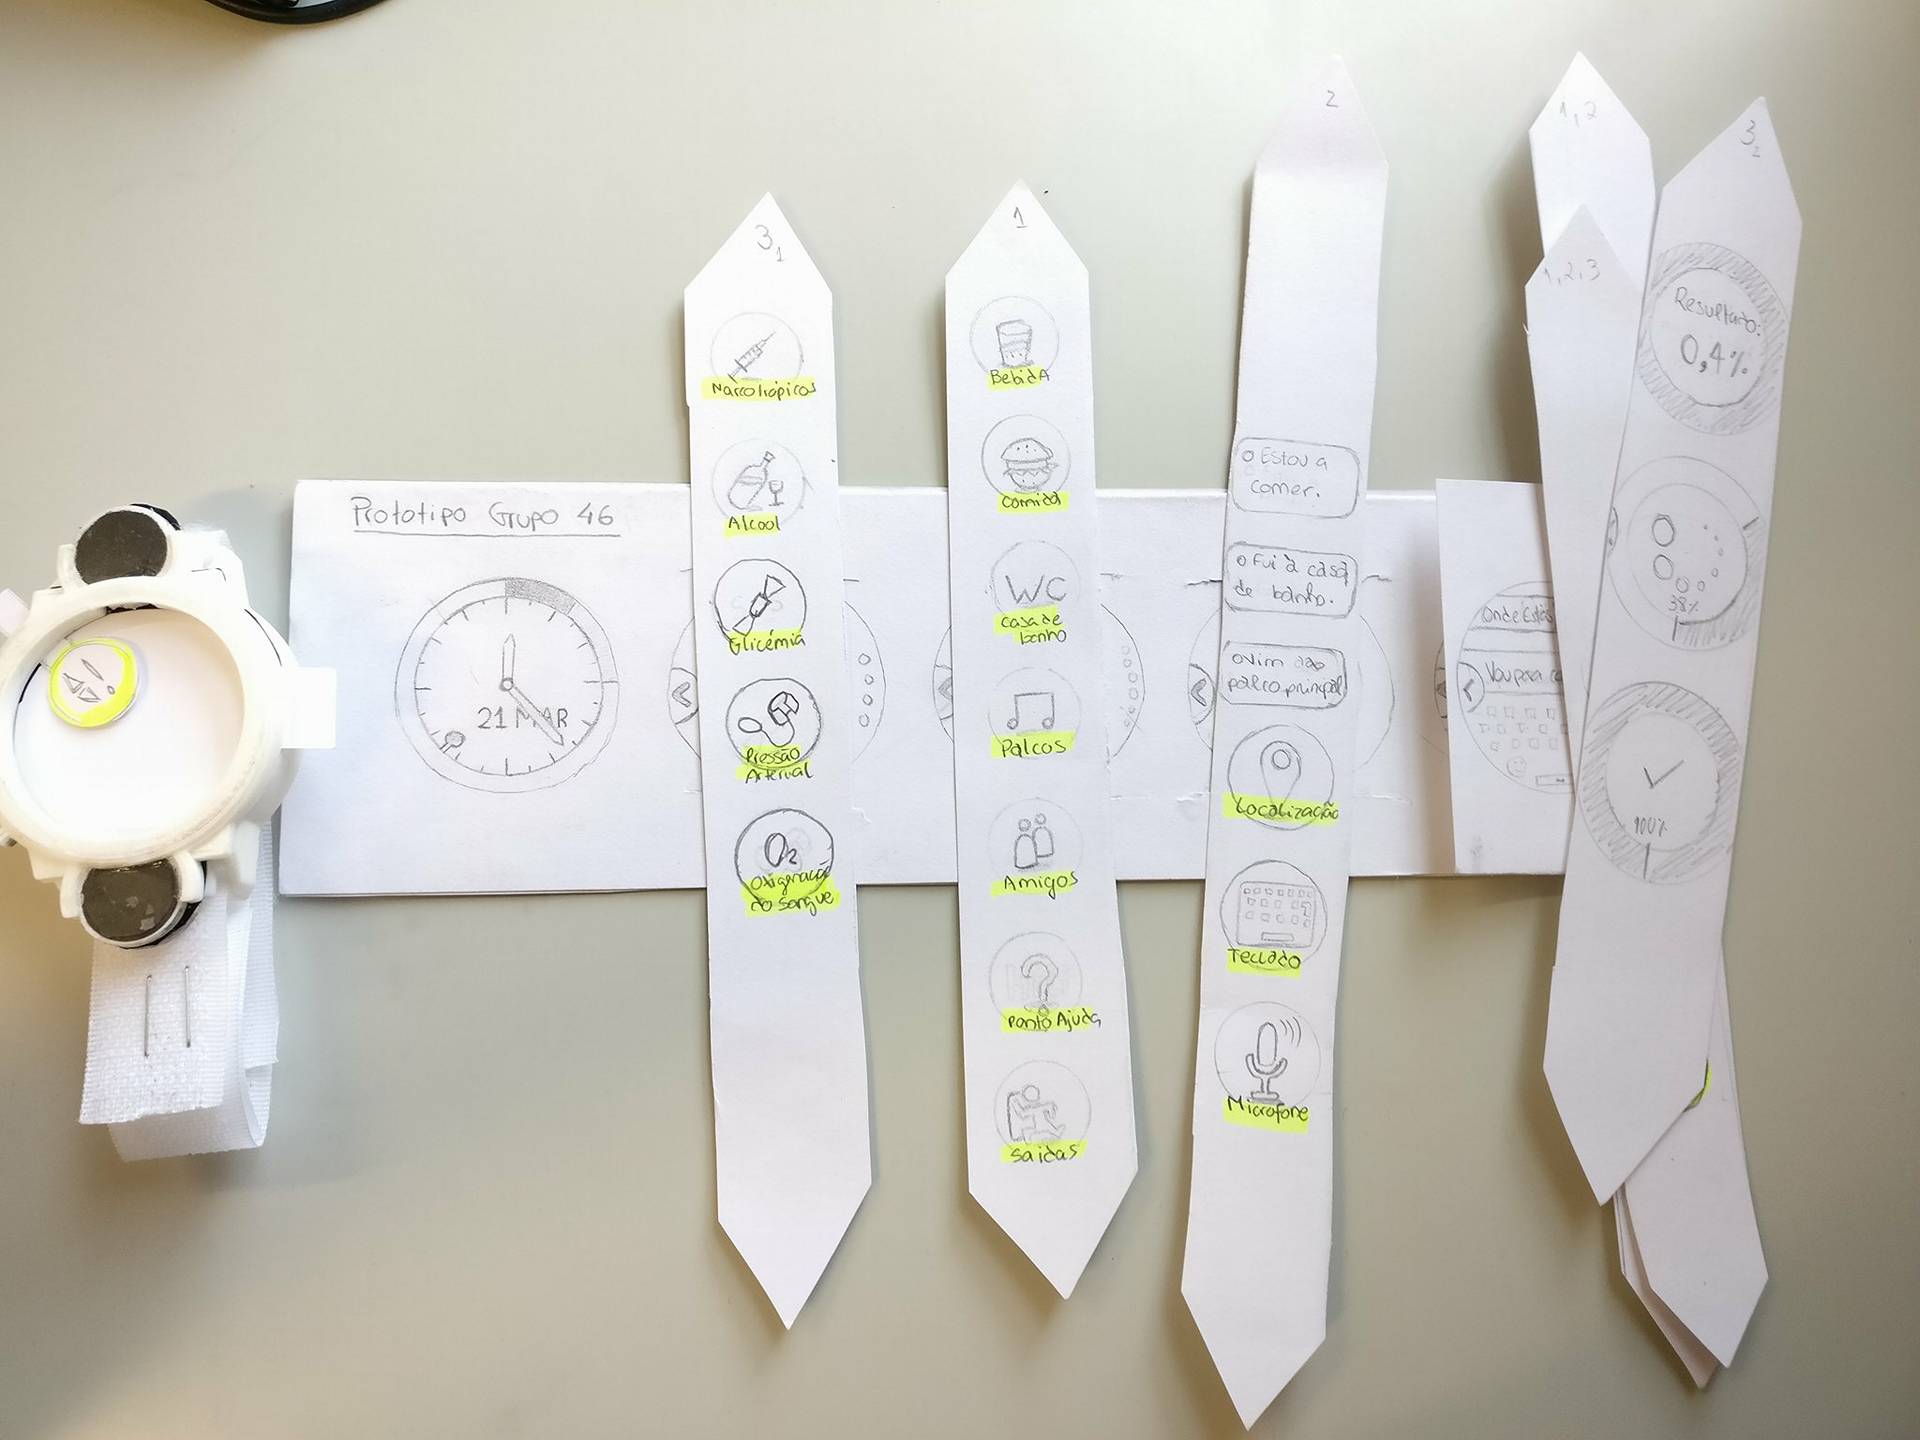 Prototipo Grupo 46
21 MAR
3
1
Narcotrópicos
Alcool
Glicémia
Pressão
Arterial
O2
Oxigenação
do Sangue
1
Bebida
Comida
WC
Casa de
banho
Palcos
Amigos
Ponto Ajuda
Saidas
2
Estou a
comer.
Fui à casa
de banho.
Vim ao
palco principal
Localização
Teclado
Microfone
1,2
1,2,3
Onde Estás
Vou para
3
2
Resultado:
0,4%
38%
100%